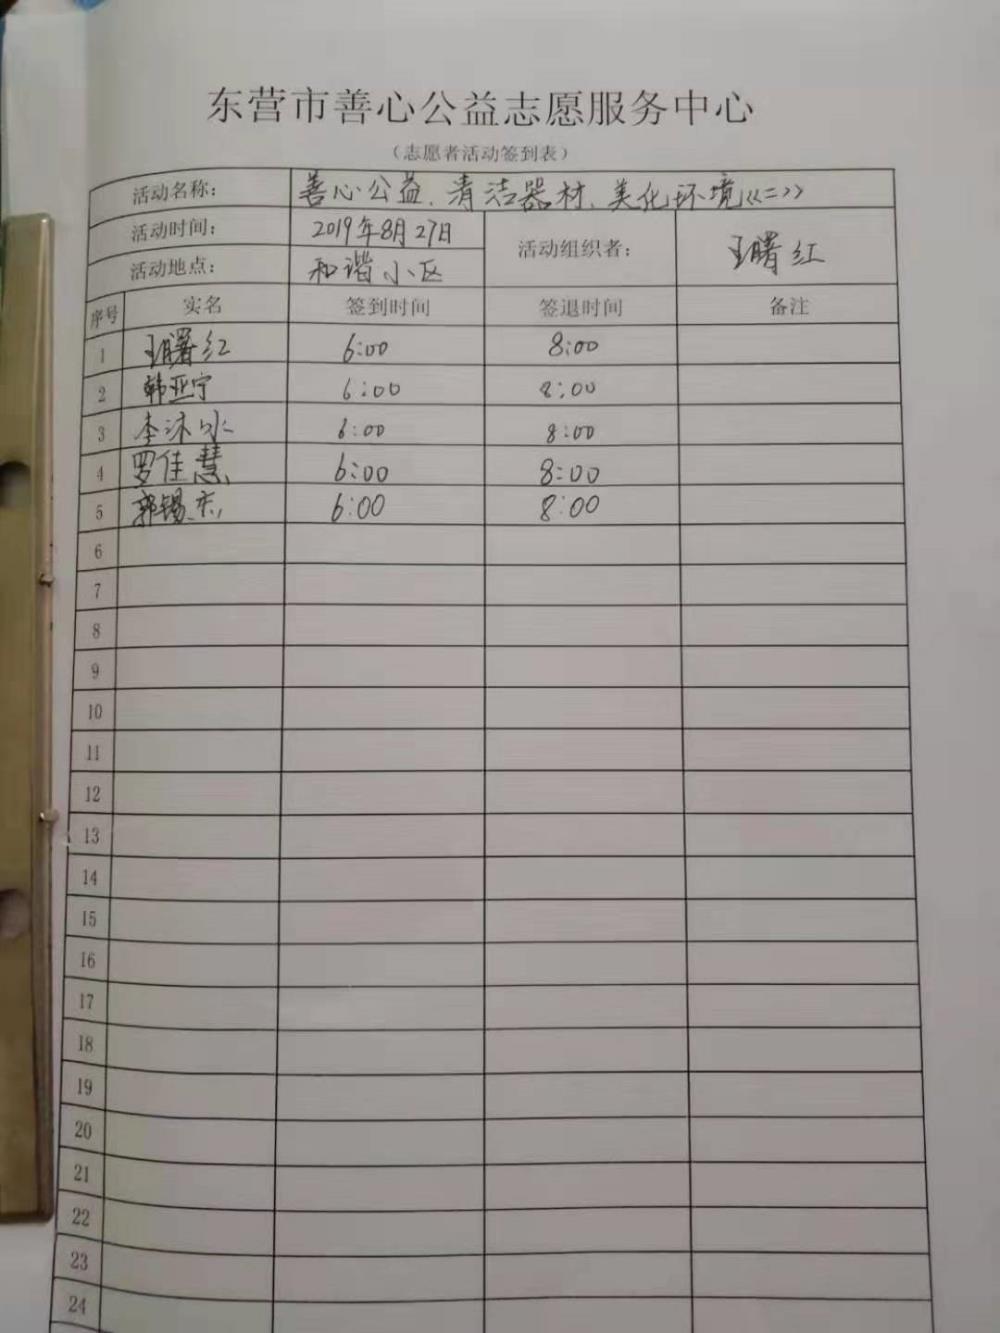 东营市善心公益志愿服务中心
（志愿者活动签到表）
活动名称： 善心公益、清洁器材、美化环境《二》
活动时间： 2019年8月27日 活动组织者： 王曙红
活动地点： 和谐小区
序号 实名 签到时间 签退时间 备注
1 王曙红 6:00 8:00
2 韩亚宁 6:00 8:00
3 李沐水 6:00 8:00
4 罗佳慧 6:00 8:00
5 郭锡东 6:00 8:00
6
7
8
9
10
11
12
13
14
15
16
17
18
19
20
21
22
23
24